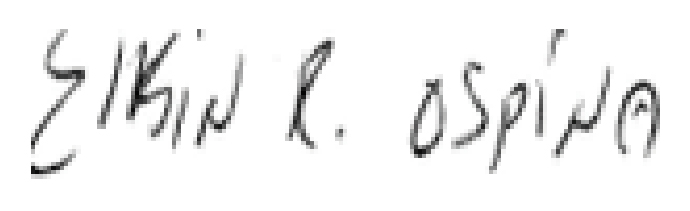 Elkin R. OSPINA